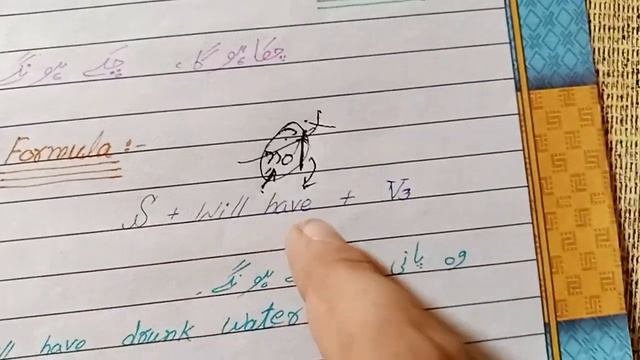 چکا ہو گا، چکے ہو نگے
Formula :-
no
S + Will have + V3
وہ پانی ہو نگے۔
have drunk water